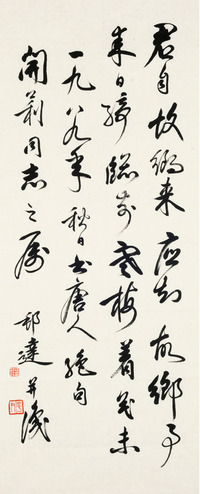 君自故鄉来应知故鄉事
来日绮𥦗前寒梅着花未
一九八九年秋日书唐人绝句
開莉同志之属
邦達并識